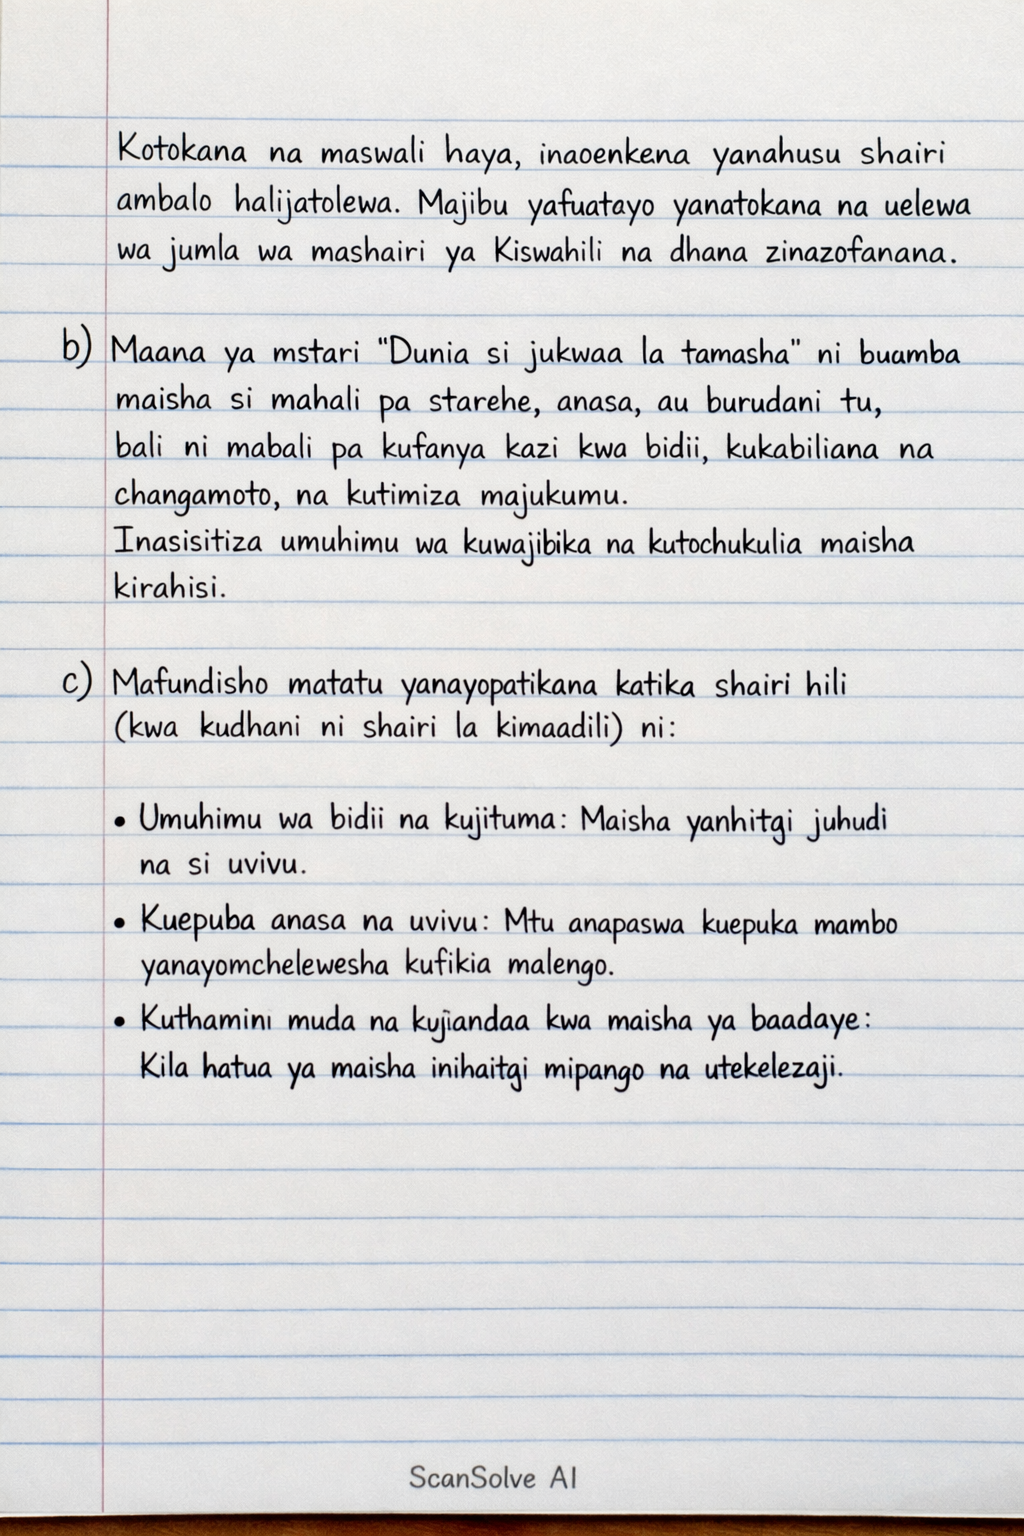 Kotokana na maswali haya, inaoenkena yanahusu shairi
ambalo halijatolewa. Majibu yafuatayo yanatokana na uelewa
wa jumla wa mashairi ya Kiswahili na dhana zinazofanana.
b) Maana ya mstari "Dunia si jukwaa la tamasha" ni buamba
maisha si mahali pa starehe, anasa, au burudani tu,
bali ni mabali pa kufanya kazi kwa bidii, kukabiliana na
changamoto, na kutimiza majukumu.
Inasisitiza umuhimu wa kuwajibika na kutochukulia maisha
kirahisi.
c) Mafundisho matatu yanayopatikana katika shairi hili
(kwa kudhani ni shairi la kimaadili) ni:
• Umuhimu wa bidii na kujituma: Maisha yanhitgi juhudi
na si uvivu.
• Kuepuba anasa na uvivu: Mtu anapaswa kuepuka mambo
yanayomchelewesha kufikia malengo.
• Kuthamini muda na kujiandaa kwa maisha ya baadaye:
Kila hatua ya maisha inihaitgi mipango na utekelezaji.
ScanSolve AI